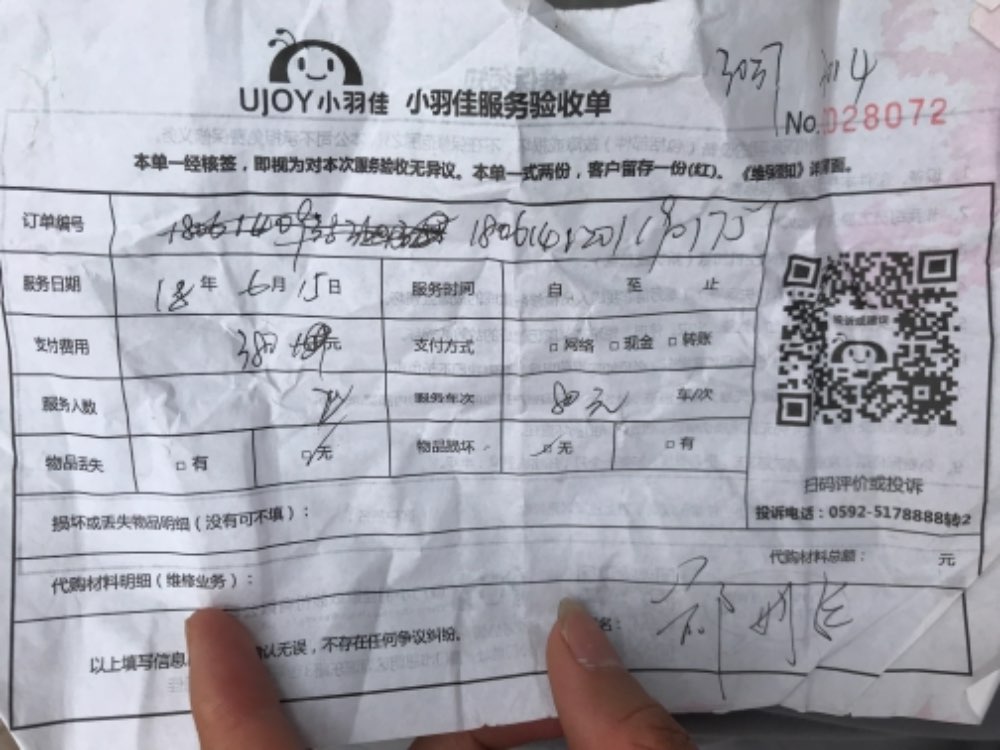 UJOY小羽佳 小羽佳服务验收单
No.028072
本单一经核签，即视为对本次服务验收无异议。本单一式两份，客户留存一份(红)。《维保须知》详背面。
订单编号
服务日期 18年 6月 15日 服务时间 自 至 止
支付费用 380 元 支付方式 □网络 □现金 □转账
服务人数 服务车次 80元 车/次
物品丢失 □有 □无 物品损坏 □无 □有
扫码评价或投诉
损坏或丢失物品明细（没有可不填）：
投诉电话：0592-5178888转2
代购材料明细（维修业务）：
代购材料总额： 元
以上填写信息 认无误，不存在任何争议纠纷。 名：